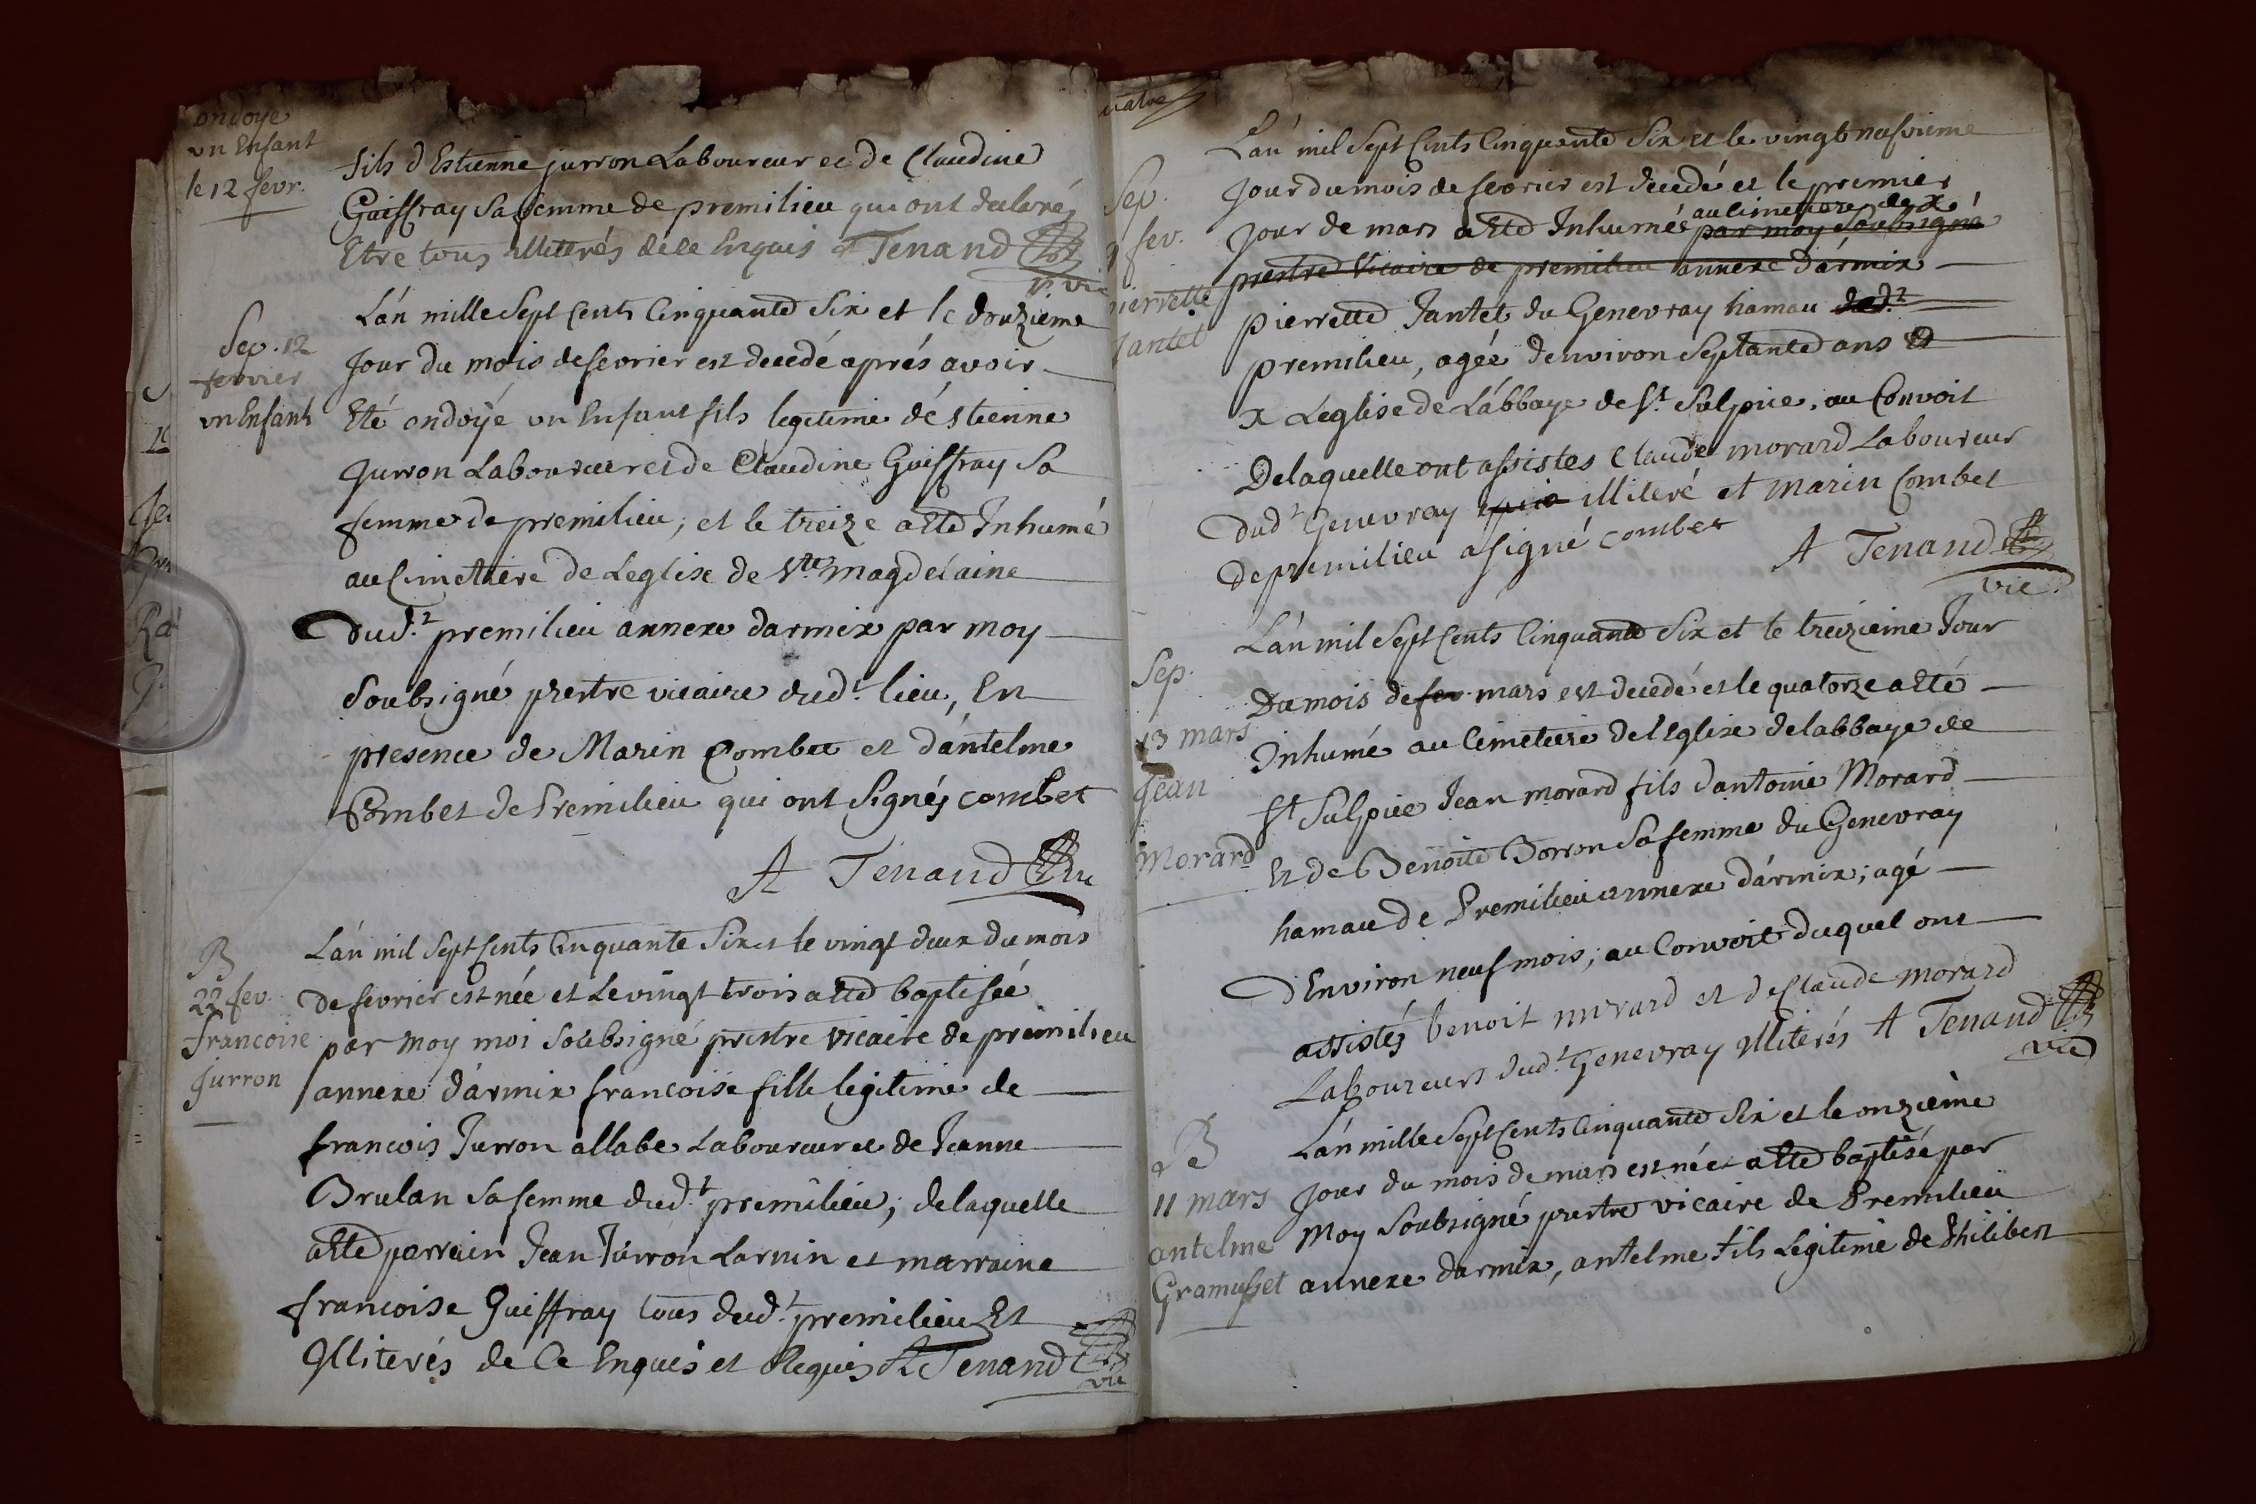 ondoye
un Enfant
le 12 fevr.
fils d'Estienne jurron Laboureur et de Claudine
Guiffray Sa femme de premilieu qui ont declarés
Etre tous illiterés de ce Enquis A Tenand
vic
Sep. 12
fevrier
un Enfant
L'an mille Sept Cents Cinquante Six et le douzieme
Jour du mois de fevrier est decedé aprés avoir
Eté ondoyé un Enfant fils legitime d'éstienne
Jurron Laboureur et de Claudine Guiffray Sa
femme de premilieu, et le treize a eté Inhumé
au Cimetiere de L'eglise de Ste Magdelaine
Dud.t premilieu annexe d'armix par moy
Soubsigné prestre vicaire dud.t lieu, En
presence de Marin Combet et d'antelme
Combet de Premilieu qui ont Signés combet
A Tenand vic
B
22 fev.
francoise
jurron
L'an mil Sept Cents Cinquante Six et le vingt deux du mois
De fevrier est née et Le vingt trois a eté baptisée
par moy moi Soubsigné prestre vicaire de premilieu
annexe d'armix francoise fille legitime de
francois Jurron allabe Laboureur et de Jeanne
Brulan Sa femme dud.t premilieu; de laquelle
a eté parrain Jean Jurron Larnin et marraine
francoise Guiffray tous dud.t premilieu Et
Illiterés de Ce Enquis et Requis A Tenand
vic
uatre
Sep.
fev.
pierrette
Jantet
L'an mil Sept Cents Cinquante Six et le vingt neufvieme
Jour du mois de fevrier est decedé et le premier
Jour de mars a eté Inhumée par moy Soubsigné au cimetiere de x
prestre Vicaire de premilieu annexe d'armix
pierrette Jantet du Genevray hamau dud.t
premilieu, agée d'environ Septante ans Et
x L'eglise de L'abbaye de St Sulpice, au Convoit
De laquelle ont assistes Claude morard Laboureur
Dud.t Genevray illiteré et Marin Combet
De premilieu a signé combet
A Tenand
vic
Sep.
13 mars
Jean
Morard
L'an mil Sept Cents Cinquante Six et le treizieme Jour
Du mois de fev mars est decedé et le quatorze a eté
Inhumé au Cimetiere de l'Eglise de l'abbaye de
St Sulpice Jean morard fils d'antoine Morard
Et de Benoite Borron Sa femme du Genevray
hamau de Premilieu annexe d'armix; agé
D'Environ neuf mois; au Convoit duquel ont
assistés benoit morard et de Claude morard
Laboureurs dud.t Genevray illiterés A Tenand
vic
B
11 mars
antelme
Gramusset
L'an mille Sept Cents Cinquante Six et le onzieme
Jour du mois de mars est né et a eté baptisé par
Moy Soubsigné prestre vicaire de Premilieu
annexe d'armix, antelme fils Legitime de Philibert